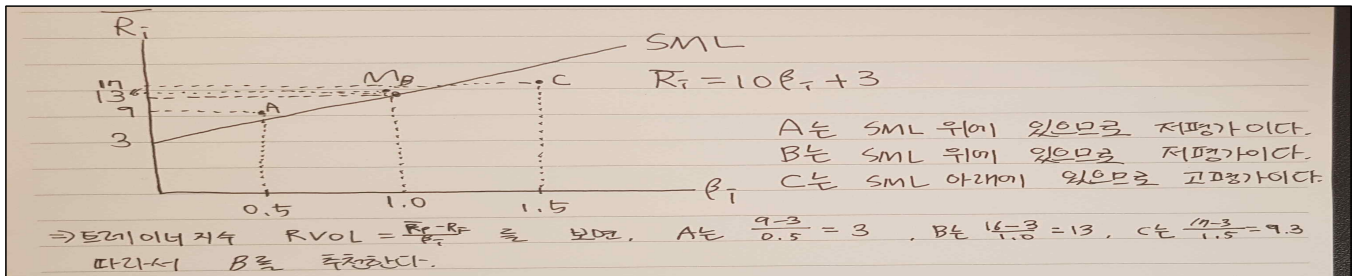 R̄ᵢ
SML
R̄ᵢ = 10βᵢ + 3
17
13
9
3
M B
A
C
A는 SML 위에 있으므로 저평가이다.
B는 SML 위에 있으므로 저평가이다.
C는 SML 아래에 있으므로 고평가이다.
0.5 1.0 1.5 βᵢ
⇒ 트레이너 지수 RVOL = (R̄p - RF)/βᵢ 를 보면, A는 (9-3)/0.5 = 3, B는 (16-3)/1.0 = 13, C는 (17-3)/1.5 = 9.3
따라서 B를 추천한다.